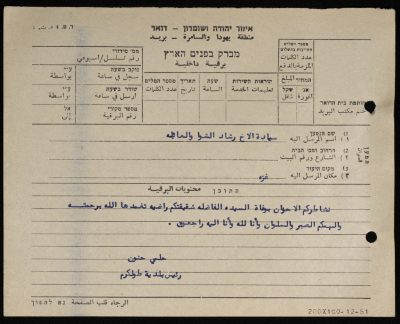 איזור יהודה ושומרון - דואר
منطقة يهودا والسامرة - بريد
מברק בפנים הארץ
برقية داخلية
מס' סידורי
رقم تسلسل/اسبوعي
נקלט בשעה
سجل في ساعة
ע"י
بواسطة
שודר בשעה
ارسل في ساعة
ע"י
بواسطة
מספר מקורי
رقم البرقية
אל
الى
מספר המלים
عدد الكلمات
תאריך
تاريخ
שעה
الساعة
הוראות השירות
تعليمات الخدمة
عدد الكلمات
המחיר
المبلغ
שקל
شاقل
אג'
اغورة
חותמת בית הדואר
ختم مكتب البريد
1) שם הנמען
اسم المرسل اليه
سيادة الاخ رشاد الشوا والعائلة
2) הרחוב ומס' הבית
الشارع ورقم البيت
3) מקום היעוד
مكان المرسل اليه
غزه
התוכן محتويات البرقية
نشاطركم الاحزان بوفاة السيده الفاضله شقيقتكم راضيه تغمدها الله برحمته
والهمكم الصبر والسلوان وانا لله وانا اليه راجعون.
حلمي حنون
رئيس بلدية طولكرم
الرجاء قلب الصفحة נא להפוך
200X100-12-81